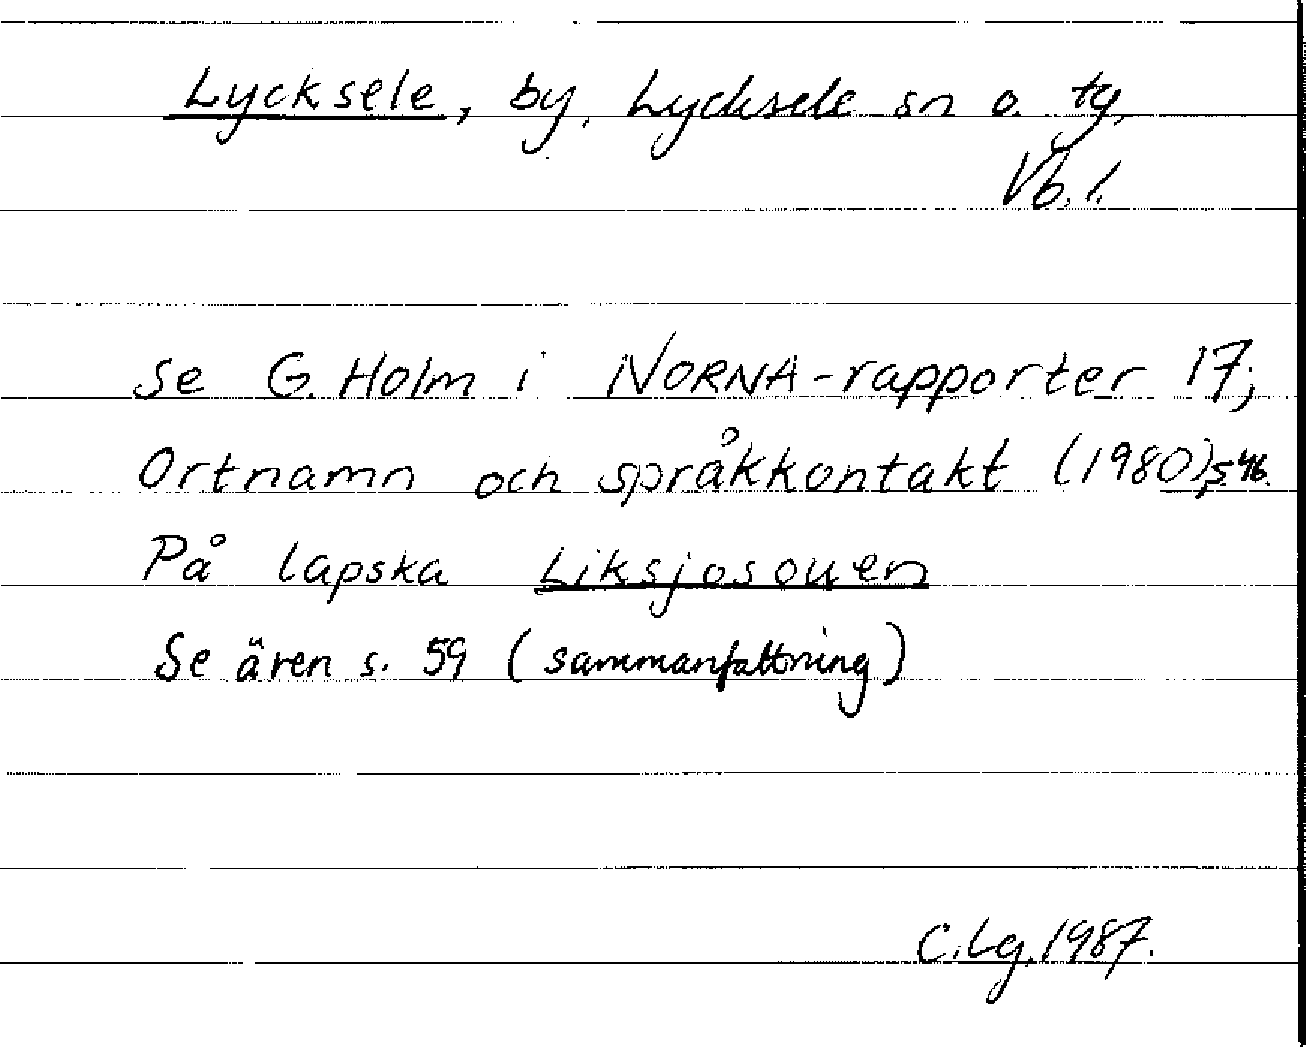 Lycksele, by, Lycksele sn o. tg,
Vb. l.
Se G. Holm i NORNA-rapporter 17;
Ortnamn och språkkontakt (1980), s. 46.
På lapska Liksjosouen
Se ären s. 59 (sammanfattning)
C. Lg. 1987.